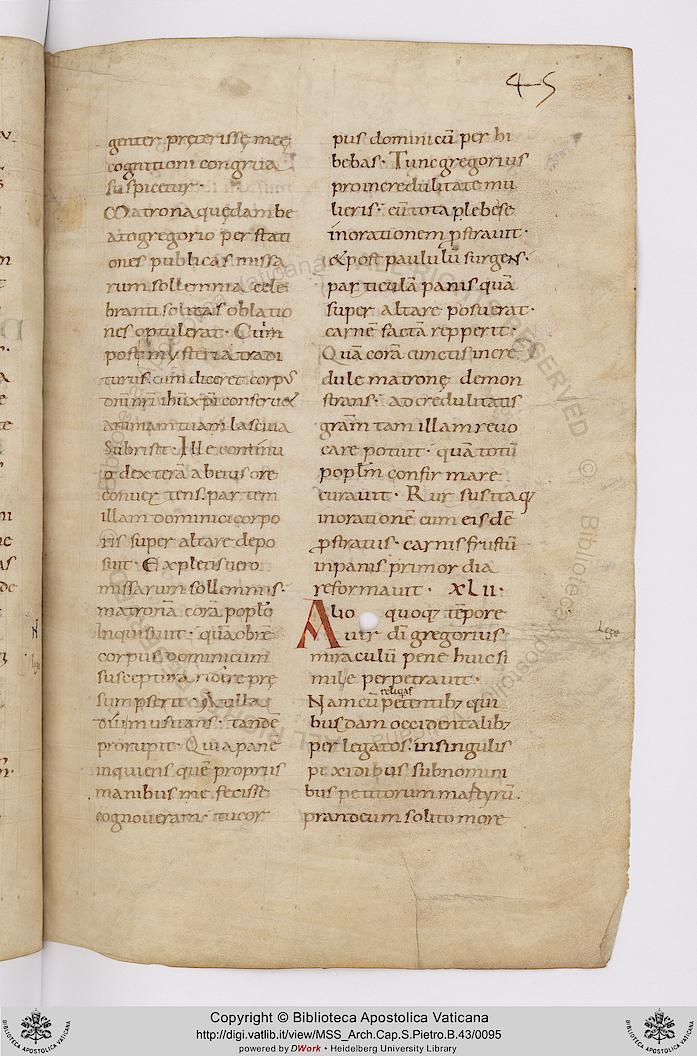 4-5
genter pręterisse meę
cognitioni congrua
suspicetur.
Matrona quędam be
ato gregorio per stati
ones publicas missa
rum sollemnia cele
branti solitas oblatio
nes optulerat. Cum
post mysteria tradi
turus cum diceret corp'
dn̄i nr̄i ihū xp̄i conservet
animam tuam lasciva
Subrisit. Ille continu
o dexterā ab eius ore
convertens. partem
illam dominici corpo
ris super altare depo
suit. Expletis vero
missarum sollemniis.
matronā corā poplo
Inquisivit. quā obrē
corpus dominicum
susceptura ridere prę
sumpserit. At illa
diu musitans. tandē
prorupit. Quia panē
inquiens quē propriis
manibus me fecisse
cognoveram. tu cor
pus dominicū per hi
bebas. Tunc gregorius
pro incredulitate mu
lieris. cū tota plebe se
in orationem ꝓstravit.
et post paululū surgens.
particulā panis quā
super altare posuerat.
carnē factā repperit.
Quā corā cunctis incre
dule matronę demon
strans. ad credulitatis
gratm̄ tam illam revo
care potuit. quā totū
popl̄m confirmare
curavit. Rursus itaq;
in orationē cum eis dē
ꝓstratus. carnis frustū
in panis primordia
reformavit. XLII.
Alio quoq; tēpore
vir dī gregorius
miraculū pene huic si
mile perpetravit.
religas
Nam cū petentib; qui
busdam occidentalib;
per legatos. in singulis
pixidibus subnomini
bus petitorum martyrū.
prandeum solito more
Copyright © Biblioteca Apostolica Vaticana
http://digi.vatlib.it/view/MSS_Arch.Cap.S.Pietro.B.43/0095
powered by DWork • Heidelberg University Library